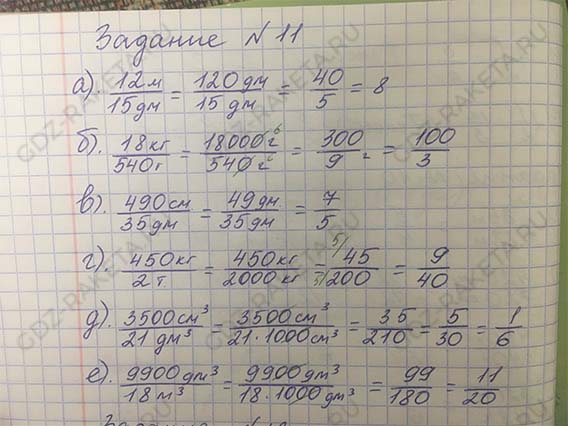 Задание №11
а). 12м/15дм = 120дм/15дм = 40/5 = 8
б). 18кг/540г = 18000г/540г = 300/9 г = 100/3
в). 490см/35дм = 49дм/35дм = 7/5
г). 450кг/2т = 450кг/2000кг = 45/200 = 9/40
д). 3500см³/21дм³ = 3500см³/21·1000см³ = 35/210 = 5/30 = 1/6
е). 9900дм³/18м³ = 9900дм³/18·1000дм³ = 99/180 = 11/20
GDZ-RAKETA.RU